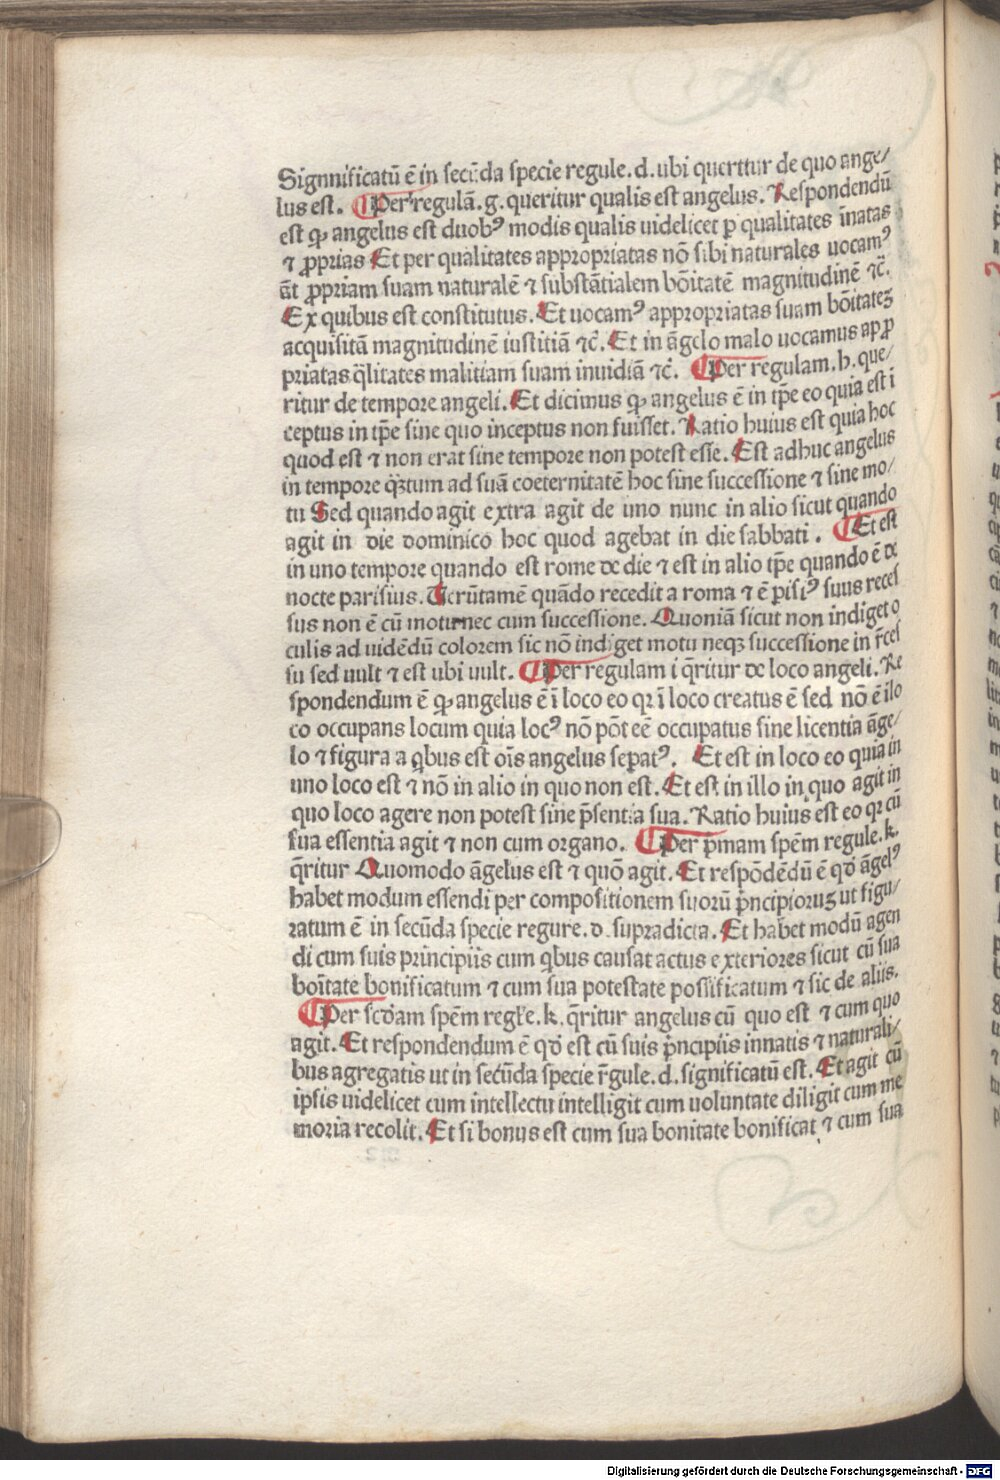 Signnificatū ē in secūda specie regule. d. ubi querttur de quo ange/
lus est. ¶ Per regulā. g. queritur qualis est angelus. Respondendū
est ꝙ angelus est duobꝰ modis qualis uidelicet p qualitates īnatas
⁊ ꝓprias Et per qualitates appropriatas nō sibi naturales uocamꝰ
āt ꝓpriam suam naturalē ⁊ substātialem bōitatē magnitudinē ⁊c̄.
Ex quibus est constitutus. Et uocamꝰ appropriatas suam bōitateꝫ
acquisitā magnitudinē iustitiā ⁊c̄. Et in āgelo malo uocamus apꝓ
priatas q̄litates malitiam suam inuidiā ⁊c̄. ¶ Per regulam. h. que/
ritur de tempore angeli. Et dicimus ꝙ angelus ē in tp̄e eo quia est i
ceptus in tp̄e sine quo inceptus non fuisset. Ratio huius est quia hoc
quod est ⁊ non erat sine tempore non potest esse. Est adhuc angelus
in tempore qꝫtum ad suā coeternitatē hoc sine successione ⁊ sine mo/
tu Sed quando agit extra agit de uno nunc in alio sicut quando
agit in die dominico hoc quod agebat in die sabbati. ¶ Et est
in uno tempore quando est rome de die ⁊ est in alio tp̄e quando ē de
nocte parisius. Uerūtamē quādo recedit a roma ⁊ ē ꝑisiꝰ suus reces
sus non ē cū motu nec cum successione. Quoniā sicut non indiget o
culis ad uidēdū colorem sic nō indiget motu neqꝫ successione in r̄ces
su sed uult ⁊ est ubi uult. ¶ Per regulam i q̄ritur de loco angeli. Re
spondendum ē ꝙ angelus ē ī loco eo qꝛ ī loco creatus ē sed nō ē ilo
co occupans locum quia locꝰ nō pōt eē occupatus sine licentia āge/
lo ⁊ figura a q̄bus est oīs angelus sepatꝰ. Et est in loco eo quia in
uno loco est ⁊ nō in alio in quo non est. Et est in illo in quo agit in
quo loco agere non potest sine p̄sentia sua. Ratio huius est eo qꝛ cū
sua essentia agit ⁊ non cum organo. ¶ Per p̄mam spēm regule. k.
q̄ritur Quomodo āgelus est ⁊ quō agit. Et respōdēdū ē qd̄ āgelꝰ
habet modum essendi per compositionem suorū p̄ncipioruꝫ ut figu/
ratum ē in secūda specie regure. d. supradicta. Et habet modū agen
di cum suis principiis cum q̄bus causat actus exteriores sicut cū sua
boītate bonificatum ⁊ cum sua potestate possificatum ⁊ sic de aliis.
¶ Per scd̄am spēm regl̄e. k. q̄ritur angelus cū quo est ⁊ cum quo
agit. Et respondendum ē qd̄ est cū suis p̄ncipiis innatis ⁊ naturali/
bus agregatis ut in secūda specie r̄gule. d. significatū est. Et agit cū
ipsis uidelicet cum intellectu intelligit cum uoluntate diligit cum me
moria recolit. Et si bonus est cum sua bonitate bonificat ⁊ cum sua
Digitalisierung gefördert durch die Deutsche Forschungsgemeinschaft - DFG